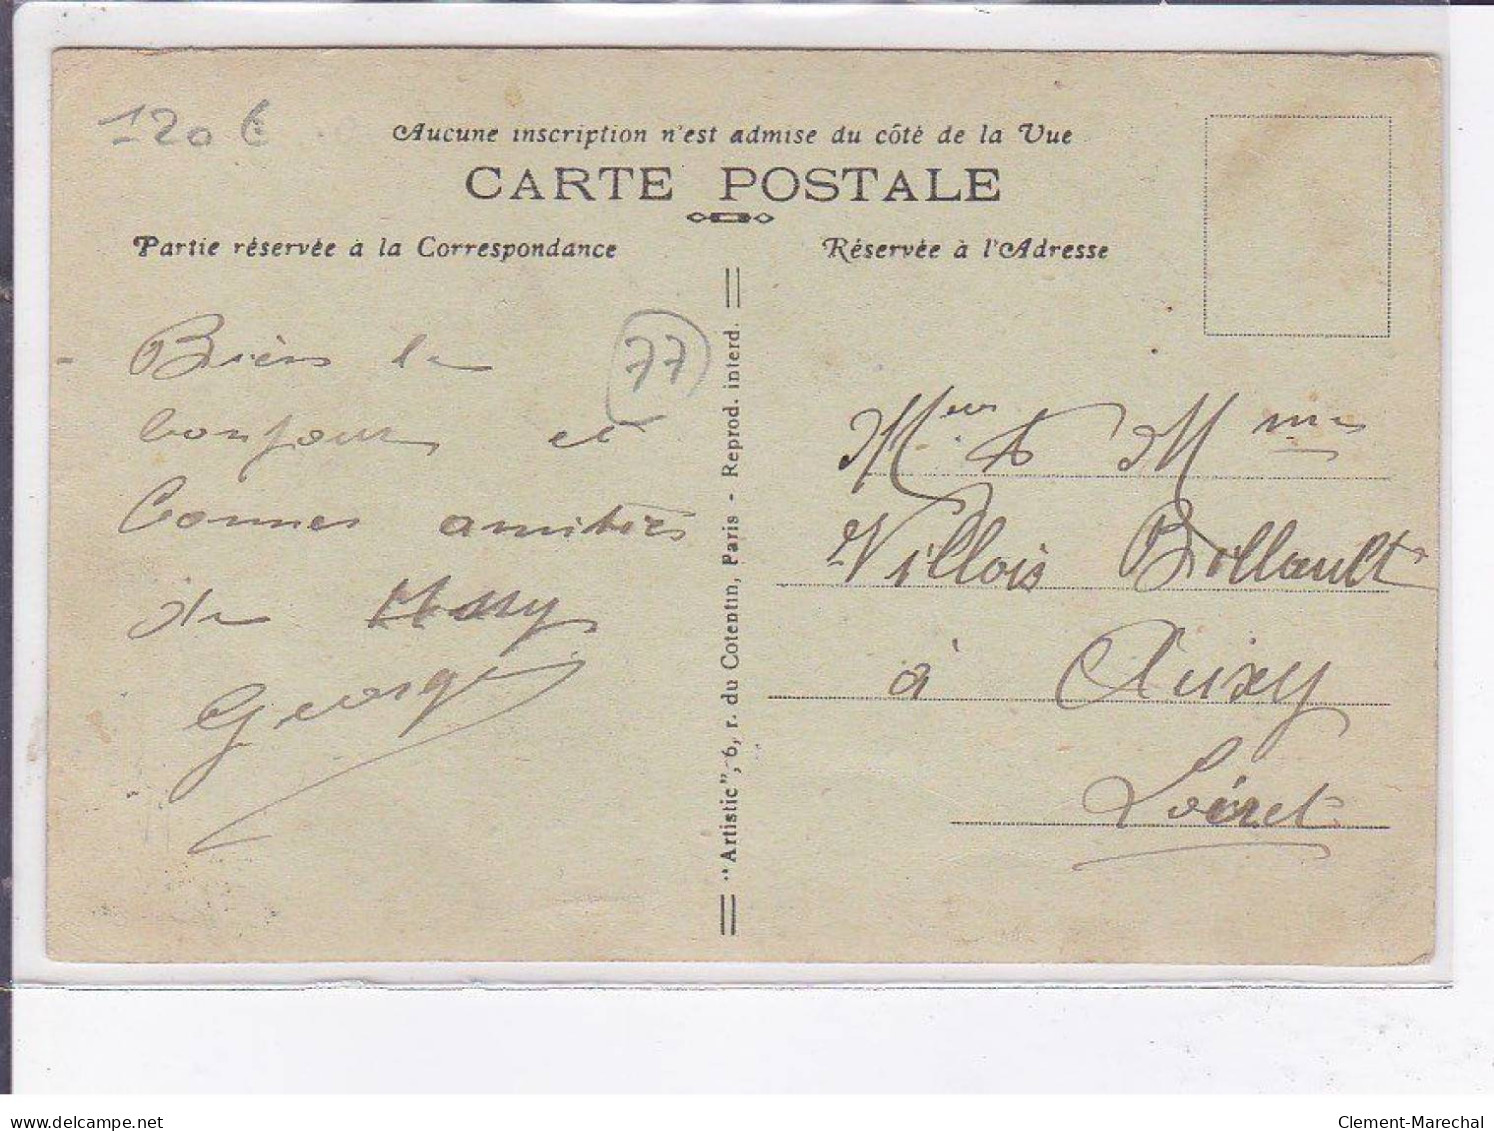 120 €
Aucune inscription n'est admise du côté de la Vue
CARTE POSTALE
Partie réservée à la Correspondance
Réservée à l'Adresse
77
Bien le
bonjour et
bonnes amitiés
de
Georges
"Artistic", 6, r. du Cotentin, Paris - Reprod. interd.
Meur & Mme
Villois Billault
à Auxy
Loiret
delcampe.net
Clement-Marechal